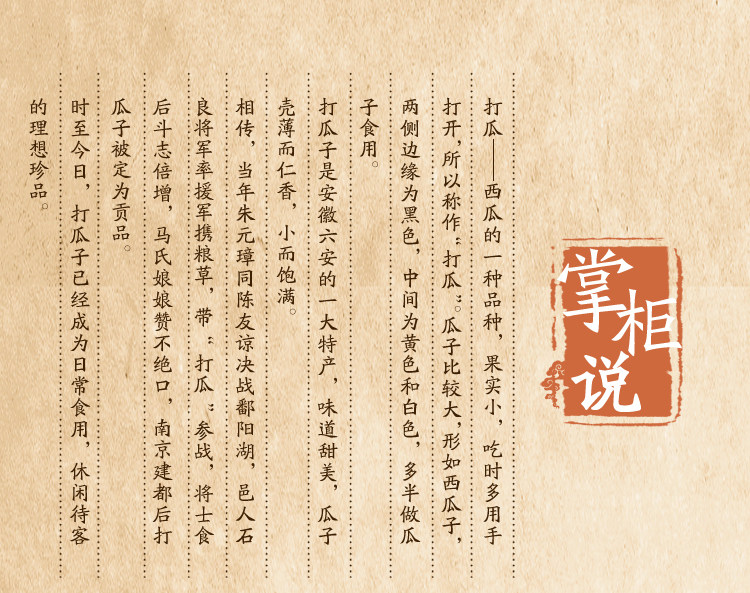 掌柜说
打瓜——西瓜的一种品种，果实小，吃时多用手
打开，所以称作“打瓜”。瓜子比较大，形如西瓜子，
两侧边缘为黑色，中间为黄色和白色，多半做瓜
子食用。
打瓜子是安徽六安的一大特产，味道甜美，瓜子
壳薄而仁香，小而饱满。
相传，当年朱元璋同陈友谅决战鄱阳湖，邑人石
良将军率援军携粮草，带“打瓜”参战，将士食
后斗志倍增，马氏娘娘赞不绝口，南京建都后打
瓜子被定为贡品。
时至今日，打瓜子已经成为日常食用，休闲待客
的理想珍品。